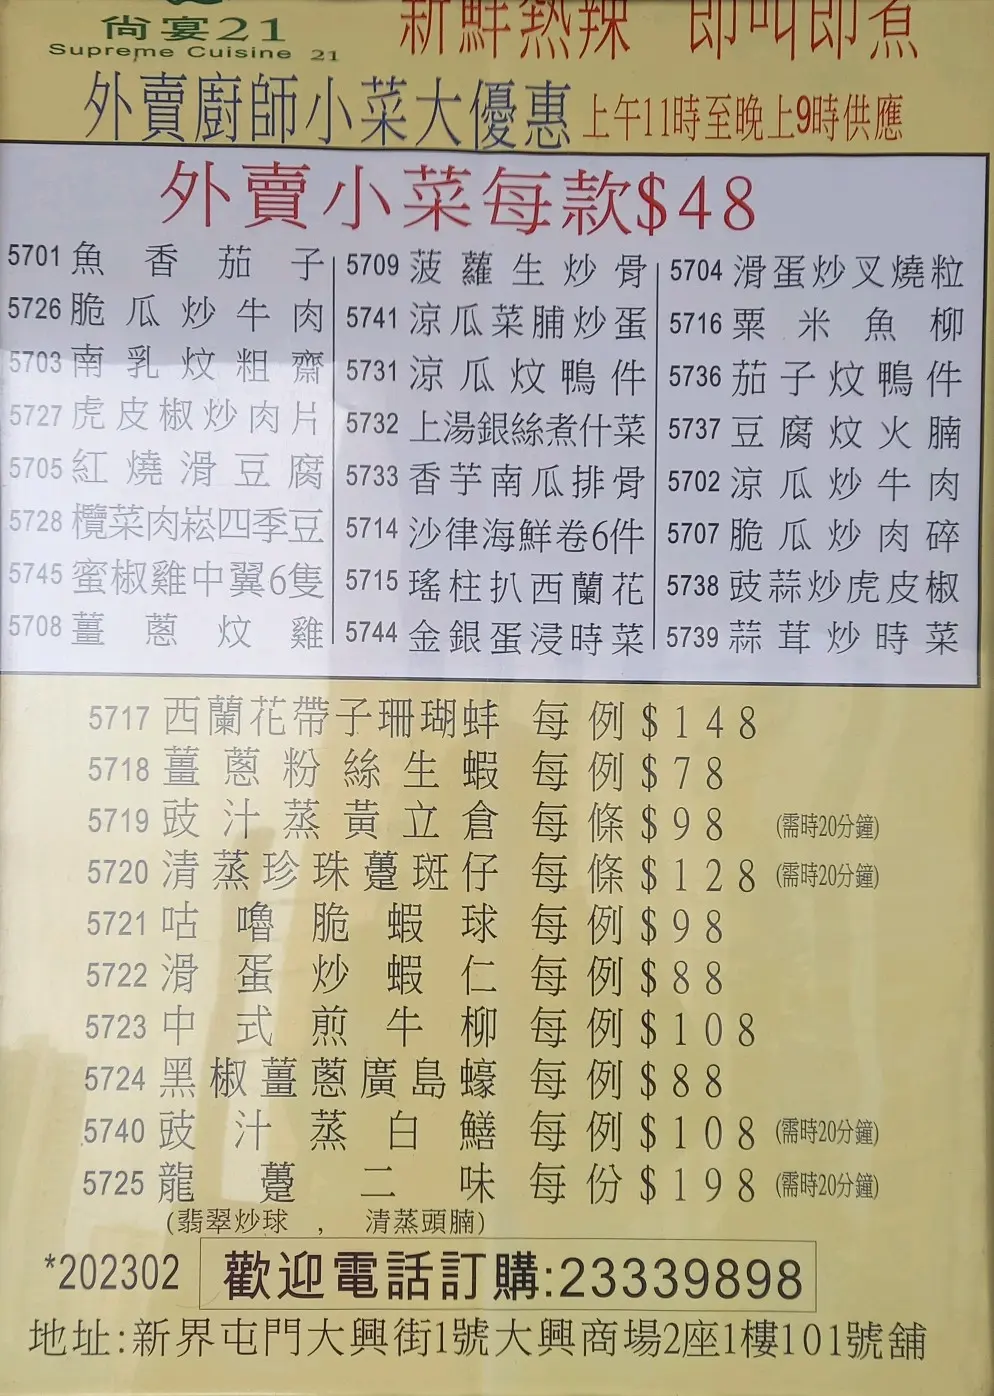 尙宴21
Supreme Cuisine 21
新鮮熱辣 即叫即煮
外賣廚師小菜大優惠 上午11時至晚上9時供應
外賣小菜每款$48
5701 魚香茄子 5709 菠蘿生炒骨 5704 滑蛋炒叉燒粒
5726 脆瓜炒牛肉 5741 涼瓜菜脯炒蛋 5716 粟米魚柳
5703 南乳炆粗齋 5731 涼瓜炆鴨件 5736 茄子炆鴨件
5727 虎皮椒炒肉片 5732 上湯銀絲煮什菜 5737 豆腐炆火腩
5705 紅燒滑豆腐 5733 香芋南瓜排骨 5702 涼瓜炒牛肉
5728 欖菜肉崧四季豆 5714 沙律海鮮卷6件 5707 脆瓜炒肉碎
5745 蜜椒雞中翼6隻 5715 瑤柱扒西蘭花 5738 豉蒜炒虎皮椒
5708 薑蔥炆雞 5744 金銀蛋浸時菜 5739 蒜茸炒時菜
5717 西蘭花帶子珊瑚蚌 每例$148
5718 薑蔥粉絲生蝦 每例$78
5719 豉汁蒸黃立倉 每條$98 (需時20分鐘)
5720 清蒸珍珠躉斑仔 每條$128 (需時20分鐘)
5721 咕嚕脆蝦球 每例$98
5722 滑蛋炒蝦仁 每例$88
5723 中式煎牛柳 每例$108
5724 黑椒薑蔥廣島蠔 每例$88
5740 豉汁蒸白鱔 每例$108 (需時20分鐘)
5725 龍躉二味 每份$198 (需時20分鐘)
(翡翠炒球 , 清蒸頭腩)
*202302 歡迎電話訂購:23339898
地址:新界屯門大興街1號大興商場2座1樓101號舖